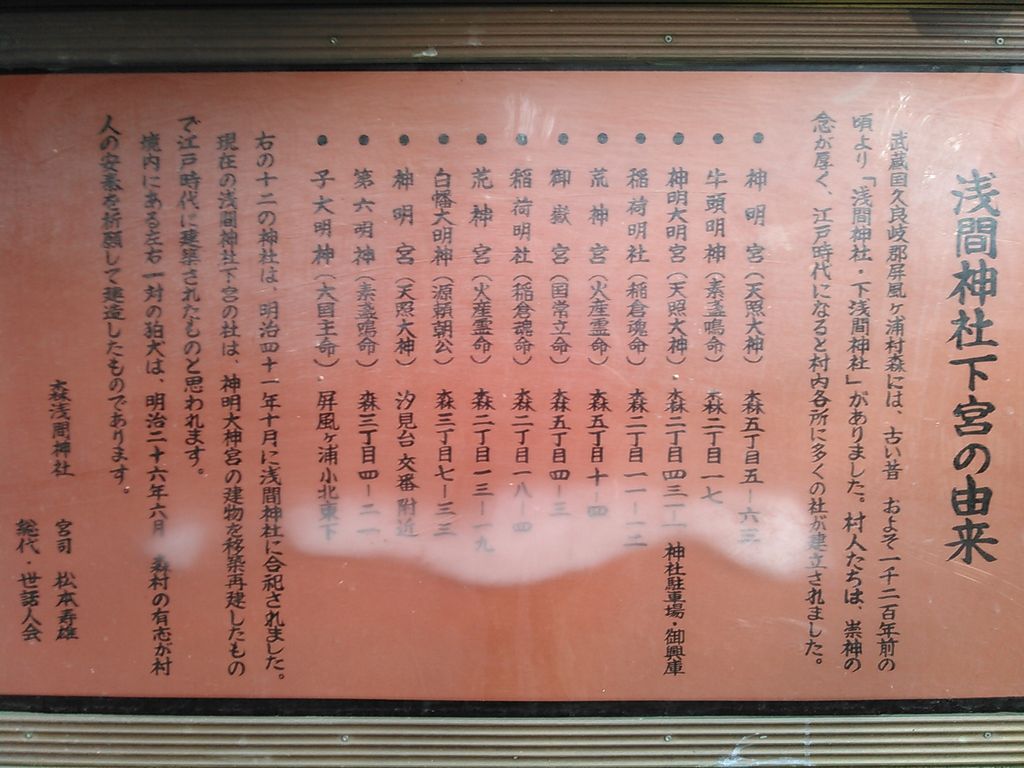 浅間神社下宮の由来
武蔵国久良岐郡屏風ヶ浦村森には、古い昔 およそ一千二百年前の
頃より「浅間神社・下浅間神社」がありました。村人たちは、崇神の
念が厚く、江戸時代になると村内各所に多くの社が建立されました。
● 神明宮（天照大神） 森五丁目五－六三
● 牛頭明神（素盞鳴命） 森二丁目一七
● 神明大明宮（天照大神） 森二丁目四三－一 神社駐車場・御輿庫
● 稲荷明社（稲倉魂命） 森二丁目一一－一二
● 荒神宮（火産霊命） 森五丁目十－四
● 御嶽宮（国常立命） 森五丁目四－三
● 稲荷明社（稲倉魂命） 森二丁目一八－四
● 荒神宮（火産霊命） 森二丁目一三－一九
● 白幡大明神（源頼朝公） 森三丁目七－三三
● 神明宮（天照大神） 汐見台交番附近
● 第六明神（素盞鳴命） 森三丁目四－二一
● 子大明神（大国主命） 屏風ヶ浦小北東下
右の十二の神社は、明治四十一年十月に浅間神社に合祀されました。
現在の浅間神社下宮の社は、神明大神宮の建物を移築再建したもの
で江戸時代に建築されたものと思われます。
境内にある左右一対の狛犬は、明治二十六年六月 森村の有志が村
人の安泰を祈願して建造したものであります。
森浅間神社 宮司 松本寿雄
総代・世話人会